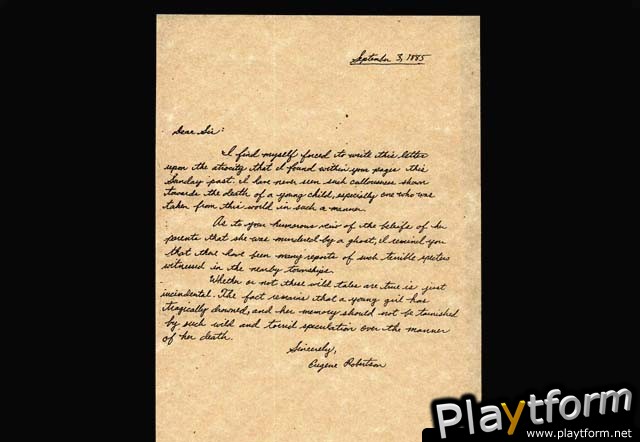 September 3, 1885
Dear Sir:
I find myself forced to write this letter
upon the atrocity that I found within your pages this
Sunday past. I have never seen such callousness shown
towards the death of a young child, especially one who was
taken from this world in such a manner.
As to your humorous view of the beliefs of her
parents that she was murdered by a ghost, I remind you
that there have been many reports of such terrible specters
witnessed in the nearby townships.
Whether or not these wild tales are true is just
incidental. The fact remains that a young girl has
tragically drowned, and her memory should not be tarnished
by such wild and torrid speculation over the manner
of her death.
Sincerely,
Eugene Robertson
Playtform
www.playtform.net